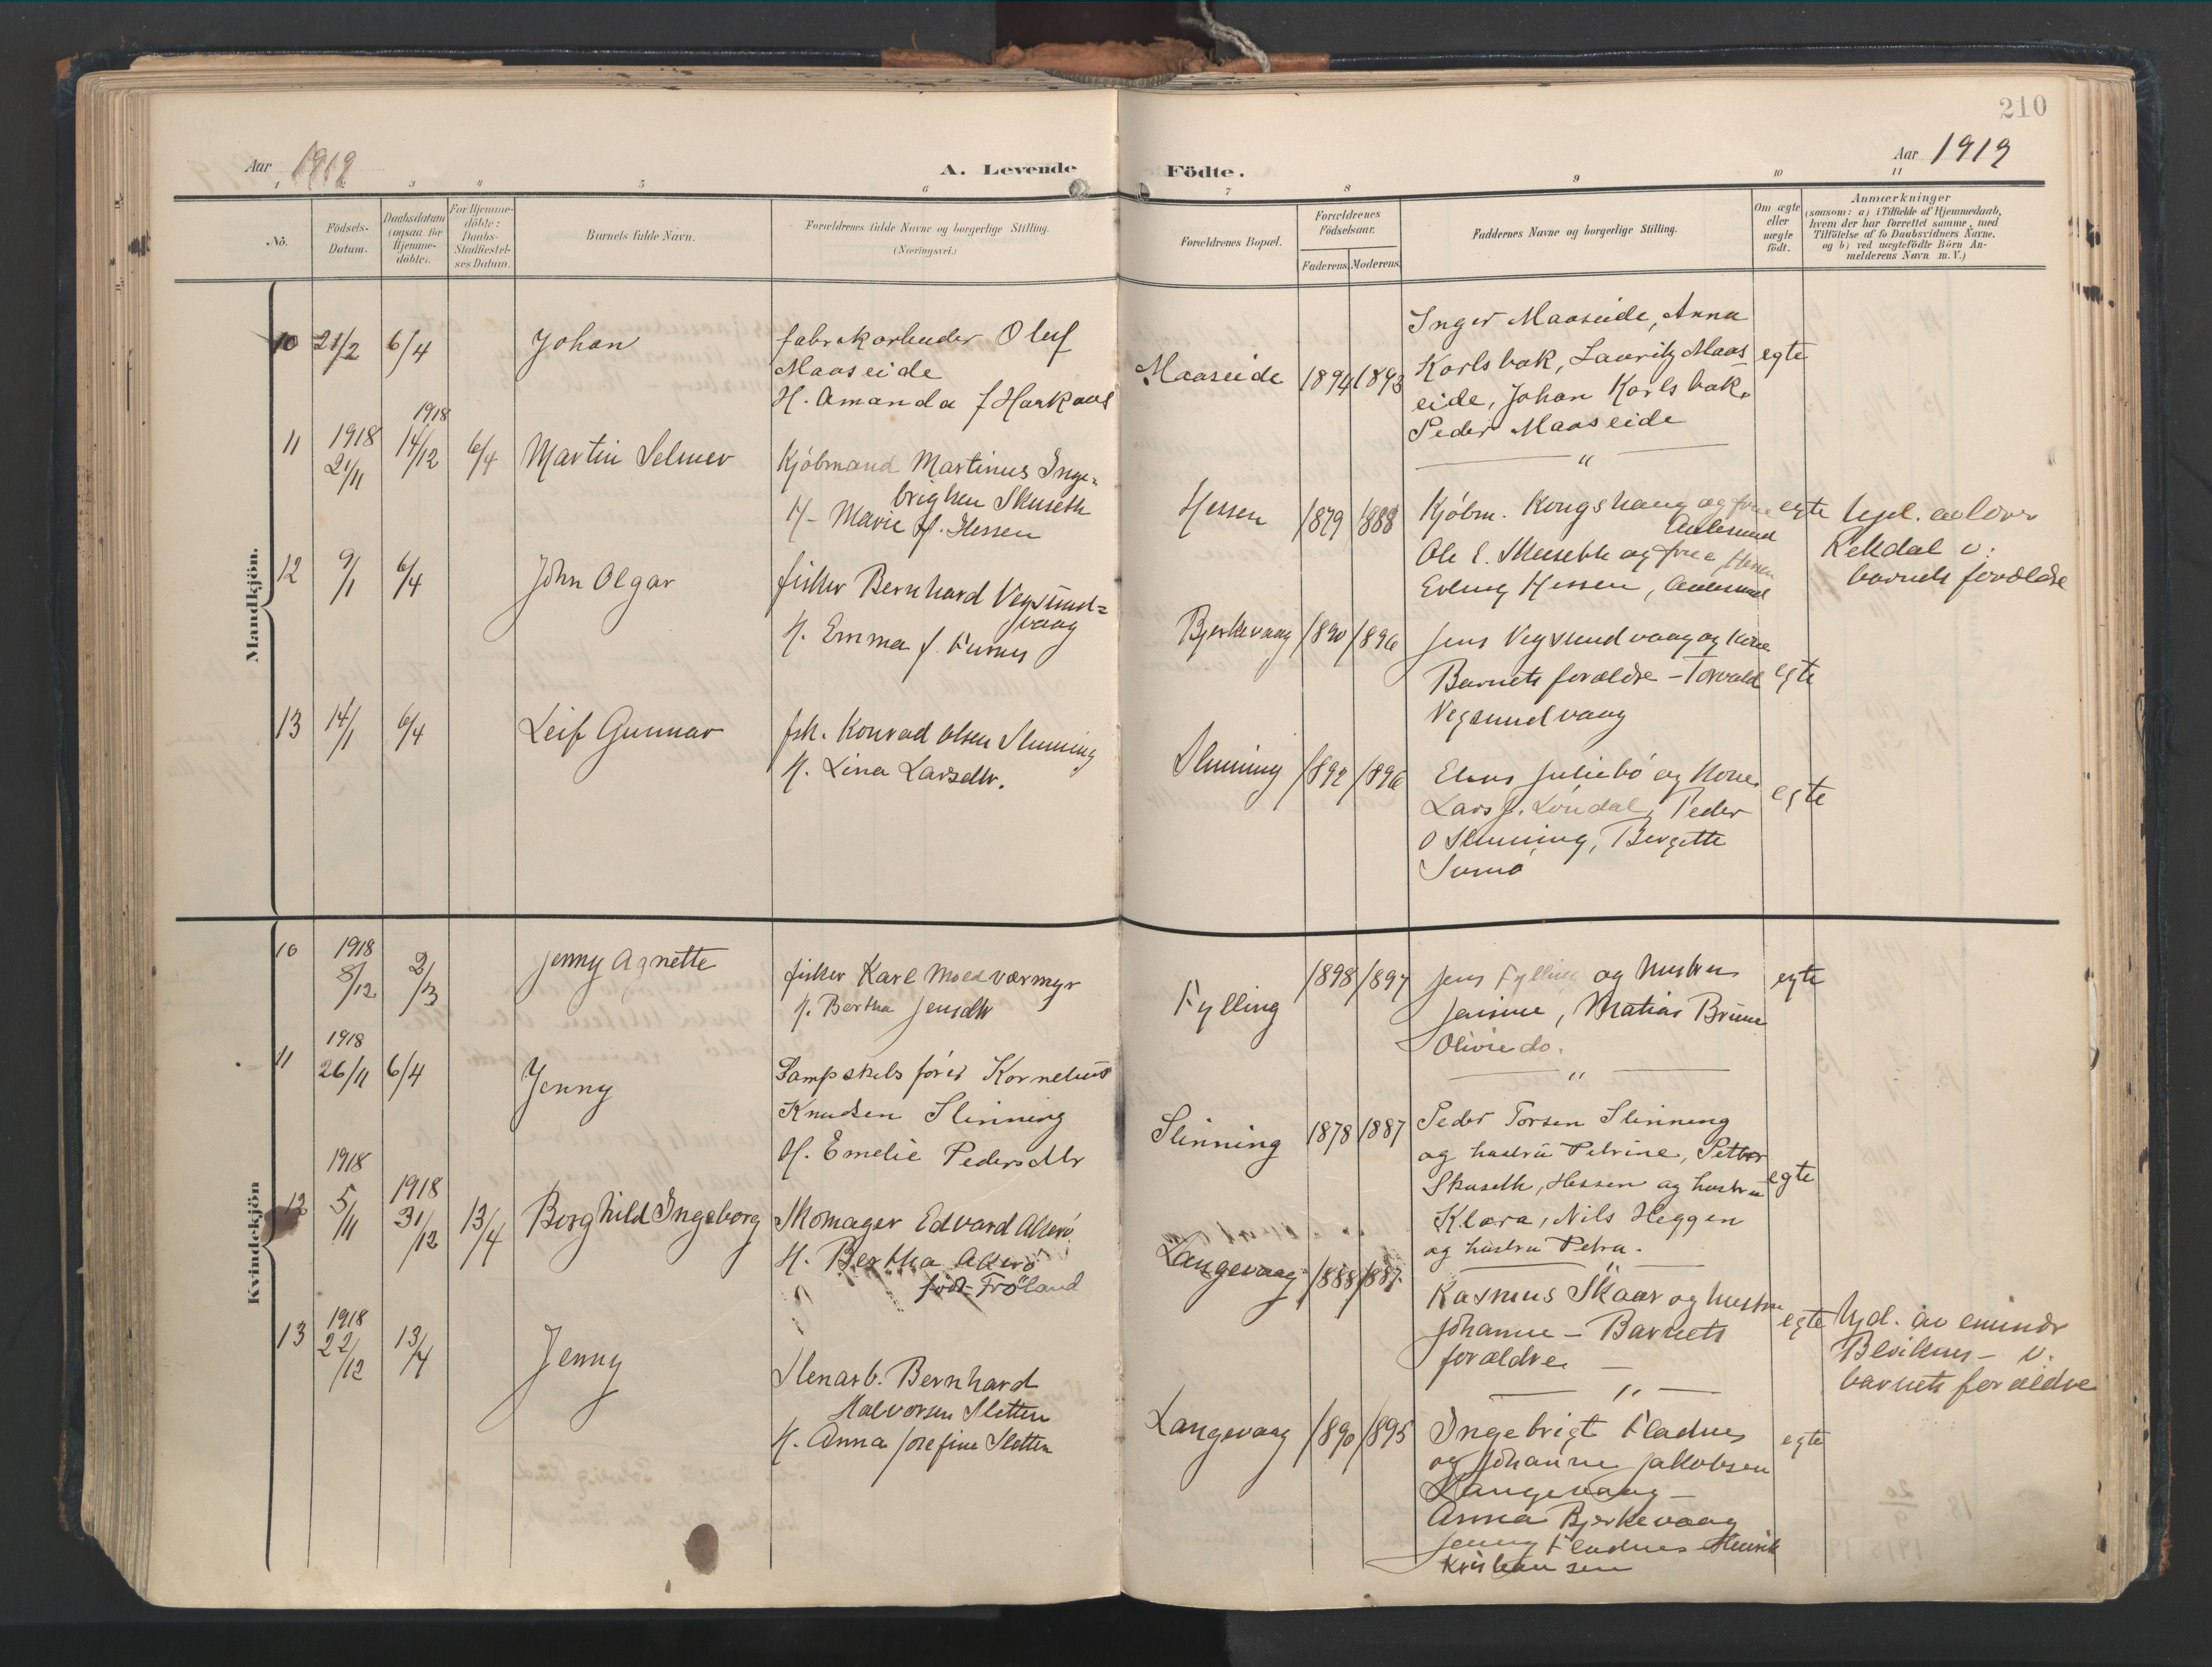 210
Aar 1919
A. Levende Födte.
Aar 1919
1 2 3 4 5 6 7 8 9 10 11
No.
Födsels-
Datum.
Daabsdatum
(ogsaa for
Hjemme-
döbte).
For Hjemme-
döbte:
Daabs-
Stadfæstel-
ses Datum.
Barnets fulde Navn.
Forældrenes fulde Navne og borgerlige Stilling.
(Næringsvei.)
Forældrenes Bopæl.
Forældrenes
Födselsaar.
Faderens. Moderens.
Faddernes Navne og borgerlige Stilling.
Om ægte
eller
uægte
født.
Anmærkninger
(saasom: a) i Tilfælde af Hjemmedaab,
hvem der har forrettet samme, med
Tilföielse af to Daabsvidners Navne,
og b) ved uægtefödte Börn An-
melderens Navn m. V.)
Mandkjön.
10 21/2 6/4 Johan
fabrikarbeider Oluf
Maaseide
H. Amanda f Harkaas
Maaseide 1894 1893
Inger Maaseide, Anna
Karlsbak, Lauritz Maas
eide, Johan Karlsbak.
Peder Maaseide
egte
11 1918 21/11 1918 14/12 6/4 Martin Selmer
Kjöbmand Martinus Inge-
brigtsen Skuseth
H- Marie f. Hessen
Hessen 1879 1888
Kjöbm. Kongshaug og frue
Aalesund
Ole E. Skuseth og frue Hessen
Erling Hessen, Aalesund
egte
Hjd. av
Rekdal v.
barnets forældre
12 9/1 6/4 John Olgar
fisker Bernhard Vegsund-
vaag
H. Emma f. Furnes
Bjerkevaag 1890 1896
Jens Vegsundvaag og kone
Barnets forældre - Torvald
Vegsundvaag
egte
13 14/1 6/4 Leif Gunnar
fsk. Konrad Olsen Slinning
H. Lina Larsdtr.
Slinning 1892 1896
Elias Juliebö og kone
Lars J. Löndal, Peder
O Slinning, Bergitte
Sunnö
egte
Kvindekjön
10 1918 8/12 2/3 Jenny Agnette
fisker Karl Moldværmyr
H. Bertha Jensdtr
Fylling 1898 1897
Jens Fylling og hustru
Jensine, Matias Brune
Olivie do.
egte
11 1918 26/11 6/4 Jenny
Dampskibsförer Kornelius
Knudsen Slinning
H. Emelie Pedersdtr
Slinning 1878 1887
Peder Torsen Slinning
og hustru Petrine, Petter
Skuseth, Hessen og hustru
Klara, Nils Heggen
og hustru Petra.
egte
12 1918 5/11 1918 31/12 13/4 Borghild Ingeborg
Skomager Edvard Akerö
H. Bertha Akerö
född Fröland
Langevaag 1888 1887
Rasmus Skaar og hustru
Johanne - Barnets
forældre
egte
Hjd. av
v.
barnets forældre
13 1918 22/12 13/4 Jenny
Stenarb. Bernhard
Halvorsen Sletten
H. Anna Josefine Sletten
Langevaag 1890 1895
Ingebrigt Fladnes
og Johanne Jakobsen
Langevaag -
Anna Bjerkevaag
Jenny Fladnes Henrik
Kristiansen
egte